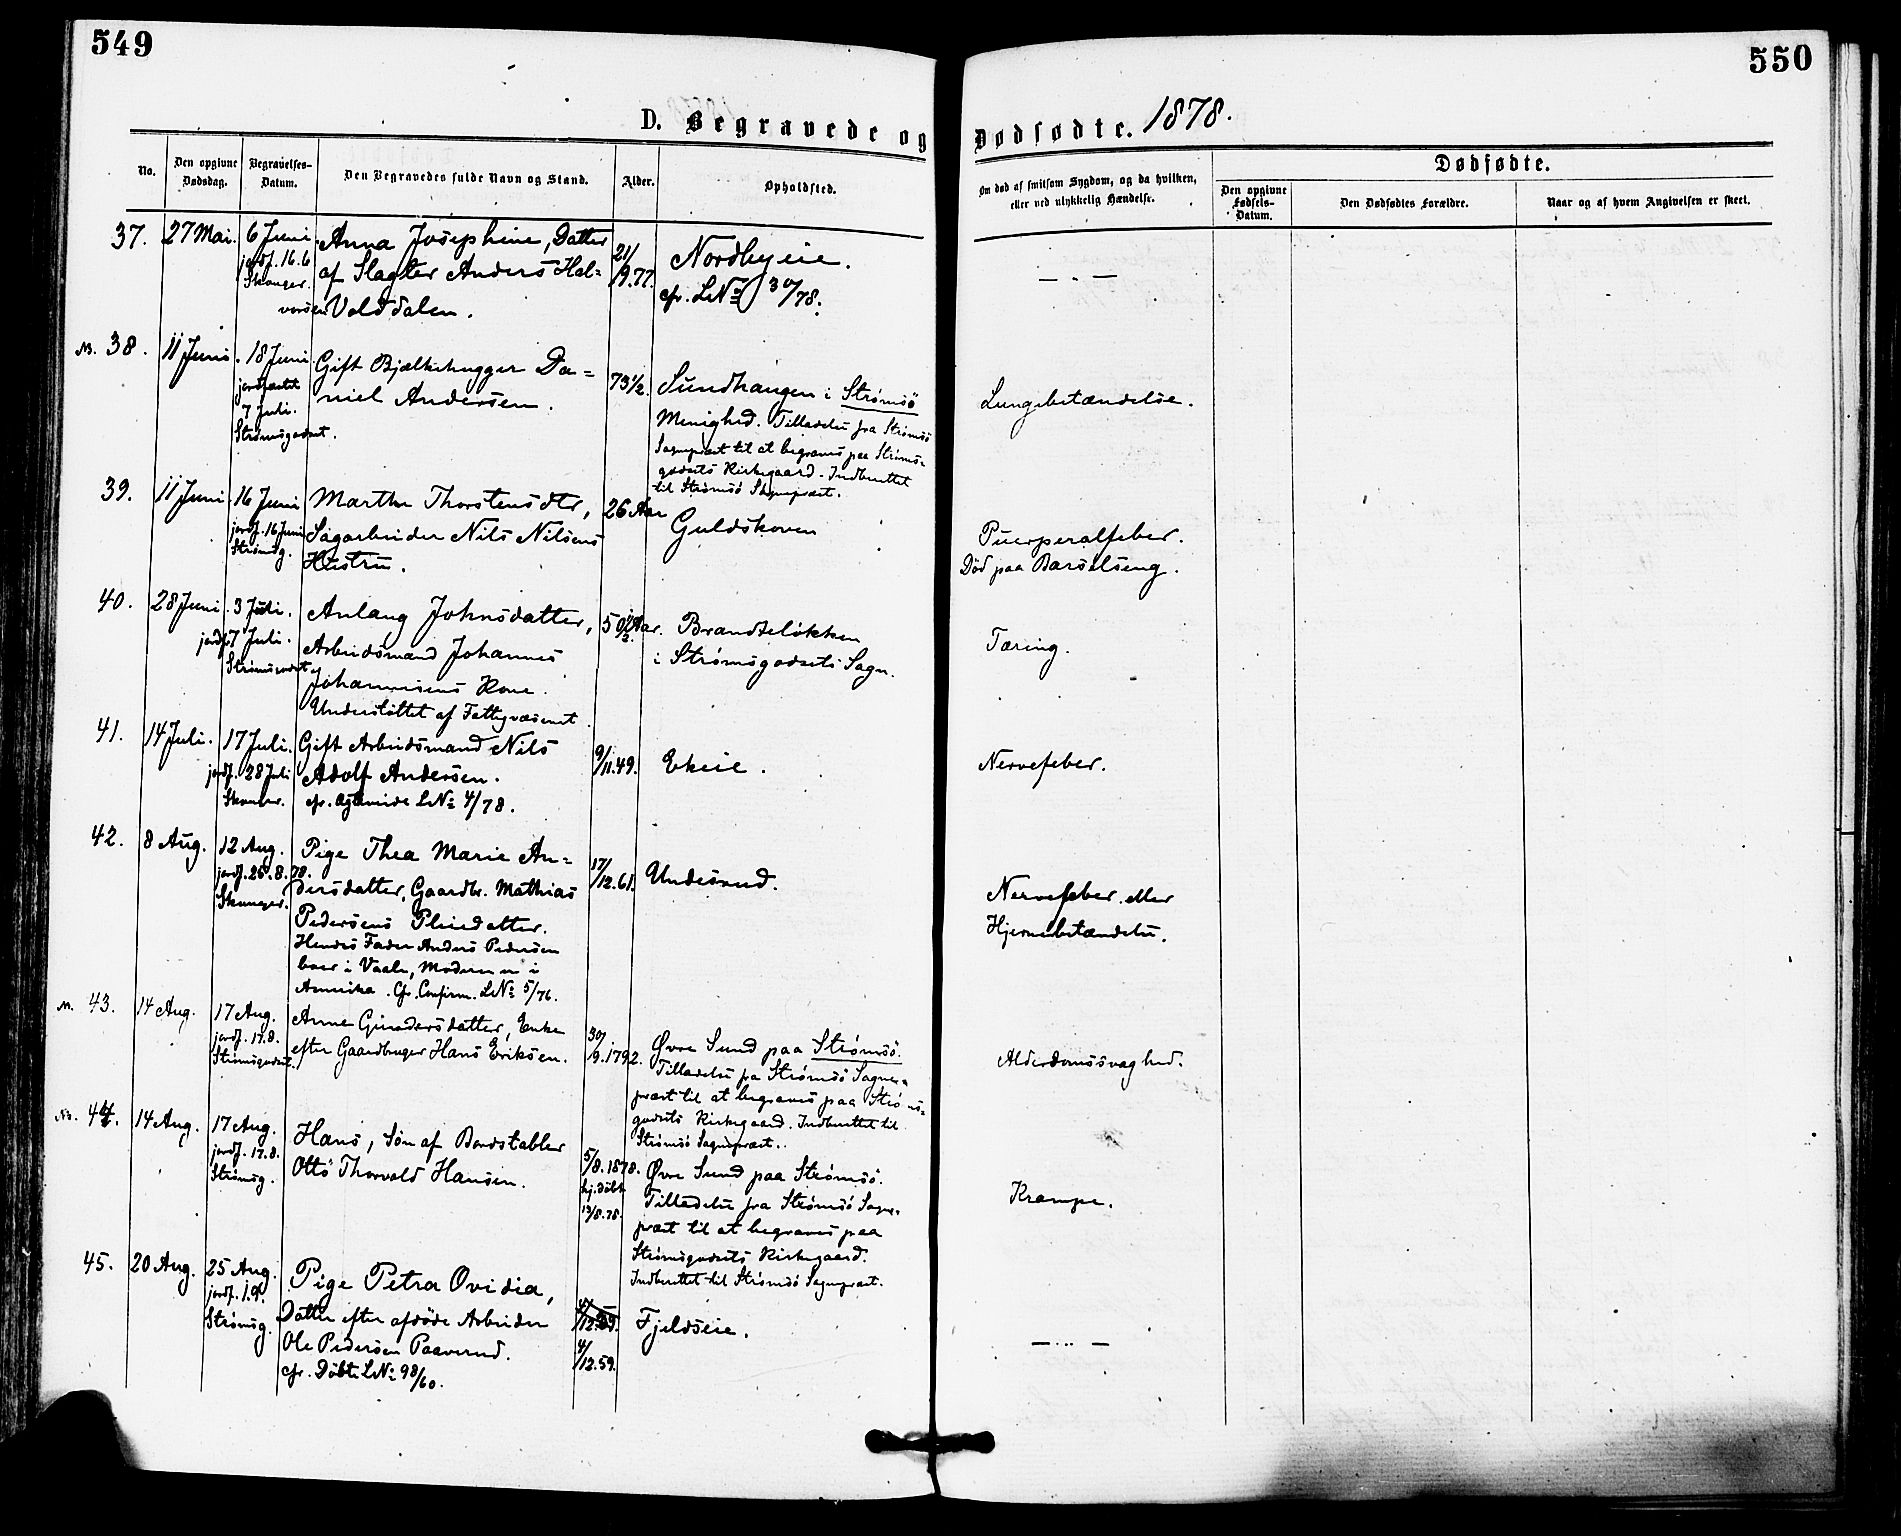 549
550
D. Begravede og Dødfødte. 1878.
No.
Den opgivne Dødsdag.
Begravelses-Datum.
Den Begravedes fulde Navn og Stand.
Alder.
Opholdsted.
Om død af smitsom Sygdom, og da hvilken,
eller ved ulykkelig Hændelse.
Dødfødte.
Den opgivne Fødsels-Datum.
Den Dødfødtes Forældre.
Naar og af hvem Angivelsen er skeet.
37.
27 Mai.
6 Juni
jordf. 16.6
Skouger.
Anna Josephine, Datter
af Slagter Anders Hal=
vorsen Velddalen.
21/9.77.
Nordbyeie.
cfr. LNo 30/78.
— . —
NB. 38.
11 Juni
18 Juni
jordfæstet
7 Juli.
Strømsgodset.
Gift Bjælkehugger Da=
niel Andersen.
73 1/2.
Sundhaugen i Strømsö
Menighed. Tilladelse fra Strömsö
Sognepræst til at begraves paa Ströms=
godsets Kirkegaard. Indberettet
til Strømsö Sognepræst.
Lungebetændelse.
39.
11 Juni
16 Juni
jordf. 16 Juni
Strömsg.
Marthe Thorstensdtr,
Sagarbeider Nils Nilsens
Hustru.
26 Aar
Guldskoven
Puerperalfeber.
Död paa Barselseng.
40.
28 Juni
3 Juli.
jordf. 7 Juli.
Strömsgodset
Anlaug Johnsdatter,
Arbeidsmand Johannes
Johannesens Kone.
Understöttet af Fattigvæsenet.
50 1/2 Aar.
Brandtelökken
i Strömsgodsets Sogn.
Tæring.
41.
14 Juli.
17 Juli.
jordf. 28 Juli
Skouger.
Gift Arbeidsmand Nils
Adolf Andersen.
cfr. Ægteviede LNo 4/78.
9/11.49.
Ekeie.
Nervefeber.
42.
8 Aug.
12 Aug.
jordf. 25.8.78.
Skouger.
Pige Thea Marie An=
dersdatter, Gaardbr. Mathias
Pedersens Pleiedatter.
Hendes Fader Anders Pedersen
boer i Vaale, Moderen er i
Amerika. Cfr. Confirm. LNo 5/76.
17/12.61.
Undesrud.
Nervefeber eller
Hjernebetændelse.
NB. 43.
14 Aug.
17 Aug.
jordf. 17.8.
Strömsgodset.
Anne Gundersdatter, Enke
efter Gaardbruger Hans Eriksen.
30/9.1792.
Øvre Sund paa Strömsö.
Tilladelse fra Strömsö Sogne=
præst til at begraves paa Ströms=
godsets Kirkegaard. Indberettet til
Strömsö Sognepræst.
Alderdomssvaghed.
NB. 44.
14 Aug.
17 Aug.
jordf. 17.8.
Strömsg.
Hans, Sön af Bordstabler
Otto Thorvald Hansen.
5/8.1878.
hj.döbt
13/8.78.
Øvre Sund paa Strömsö.
Tilladelse fra Strömsö Sogne=
præst til at begraves paa
Strömsgodsets Kirkegaard.
Indberettet til Strömsö Sognepræst.
Krampe.
45.
20 Aug.
25 Aug.
jordf. 1.9.
Strömsg.
Pige Petra Ovidia,
Datter efter afdöde Arbeider
Ole Pedersen Paaverud.
cfr. Döbte LNo 98/60.
4/12.59.
Fjeldseie.
— .. —